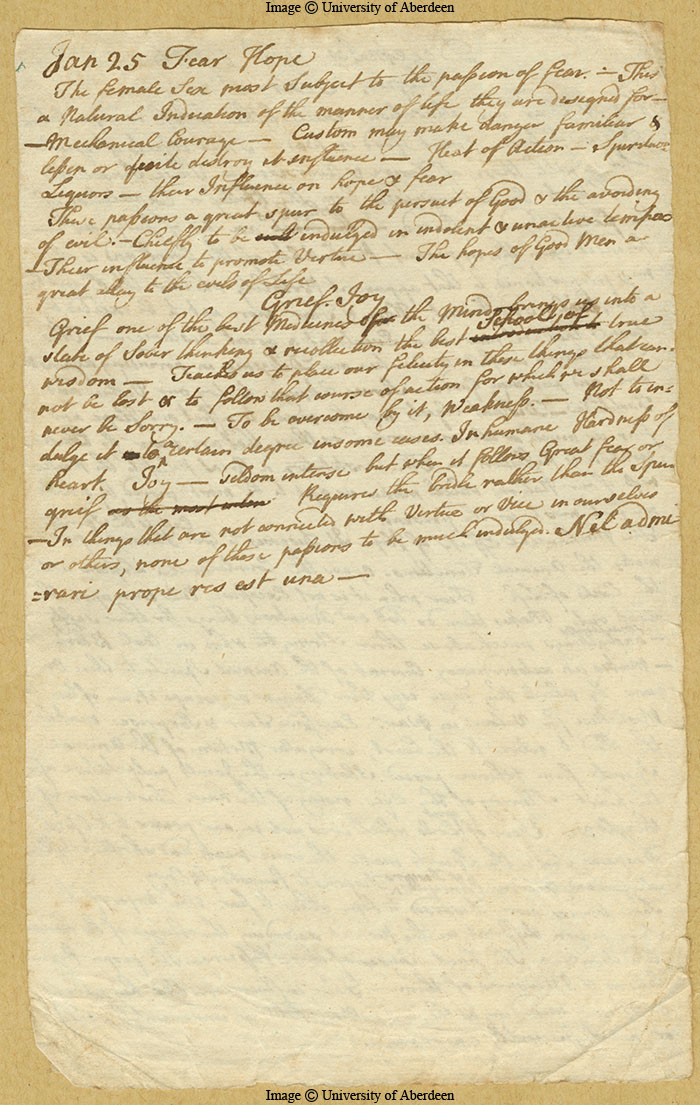 Image © University of Aberdeen
Jan 25 Fear Hope
The female Sex most Subject to the passion of fear. – This
a Natural Indication of the manner of life they are designed for –
– Mechanical Courage – Custom may make danger familiar &
lessen or destroy it influence – Heat of Action –
Liquors – their Influence on hope & fear
These passions a great spur to the persuit of Good & the avoiding
of evil. – Chiefly to be indulged in indolent & unactive tempers
– Their influence to promote Virtue – The hopes of Good Men a
great allay to the evils of Life
Grief. Joy
Grief one of the best Medicines for the Mind brings us into a
state of Sober thinking & recollection the best School of true
wisdom – Teaches us to place our felicity in these things that can
not be lost & to follow that course of action for which we shall
never be Sorry. – To be overcome by it, Weakness. – Not to in=
dulge it to a certain degree in some cases. Inhumane Hardness of
heart. Joy – Seldom intense but when it follows Great fear or
grief Requires the bridle rather than the Spur
– In things that are not connected with Virtue or Vice in ourselves
or others, none of these passions to be much indulged. Nil admi
=rari prope res est una –
Image © University of Aberdeen